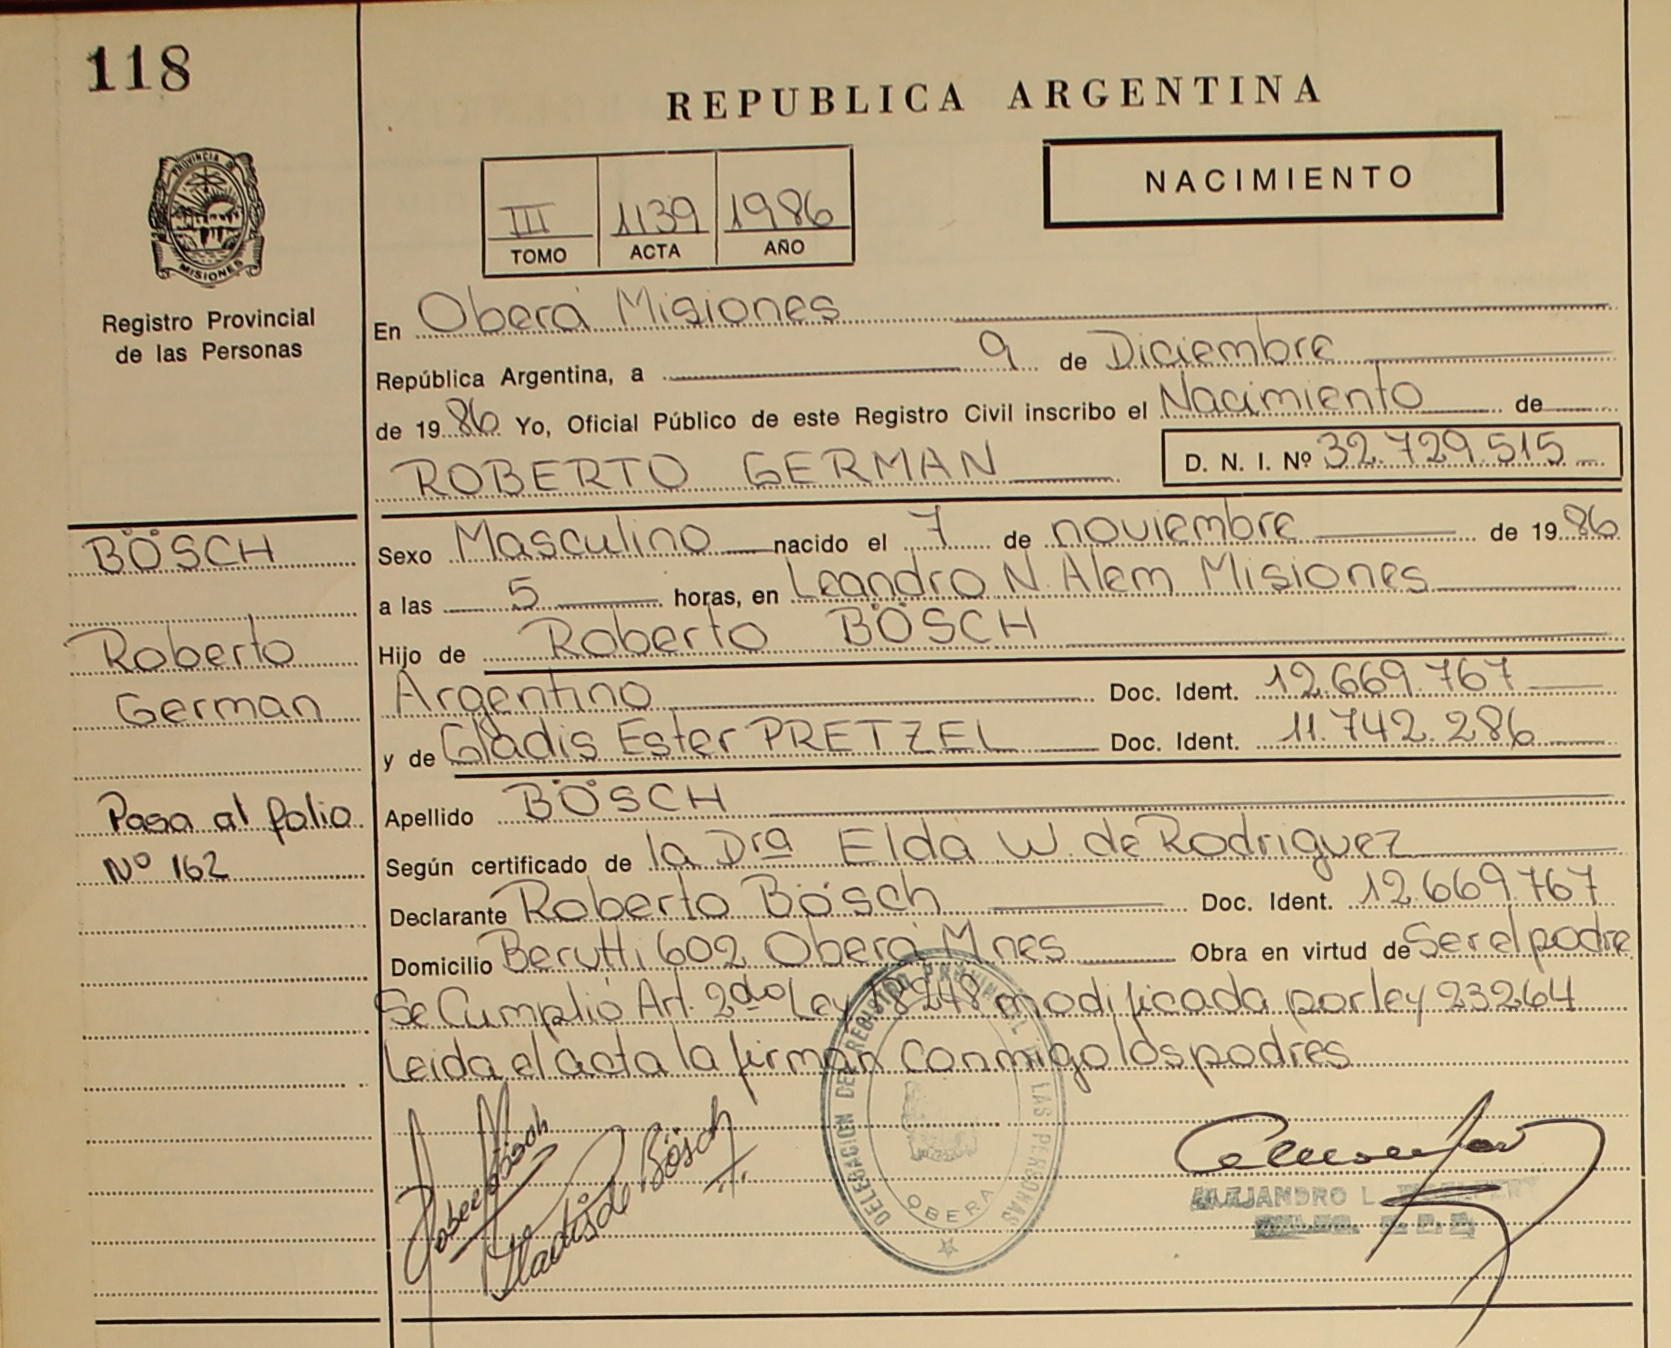 118
REPUBLICA ARGENTINA
NACIMIENTO
III 1139 1986
TOMO ACTA AÑO
PROVINCIA D MISIONES
Registro Provincial
de las Personas
En Oberá Misiones
República Argentina, a 9 de Diciembre
de 1986 Yo, Oficial Público de este Registro Civil inscribo el Nacimiento de
ROBERTO GERMAN D. N. I. Nº 32.729.515
BÖSCH
Roberto
German
Pasa al folio
Nº 162
Sexo Masculino nacido el 7 de noviembre de 1986
a las 5 horas, en Leandro N. Alem Misiones
Hijo de Roberto BÖSCH
Argentino Doc. Ident. 12.669.767
y de Gladis Ester PRETZEL Doc. Ident. 11.742.286
Apellido BÖSCH
Según certificado de la Dra Elda W. de Rodriguez
Declarante Roberto Bösch Doc. Ident. 12.669.767
Domicilio Berutti 602 Oberá Mnes Obra en virtud de Ser el padre
Se Cumplió Art. 2do Ley 18248 modificada por ley 23264
Leida el acta la firman conmigo los padres
Gladis de Bösch
DELEGACION DEL REGISTRO PROVINCIAL DE LAS PERSONAS
OBERA
ALEJANDRO L.